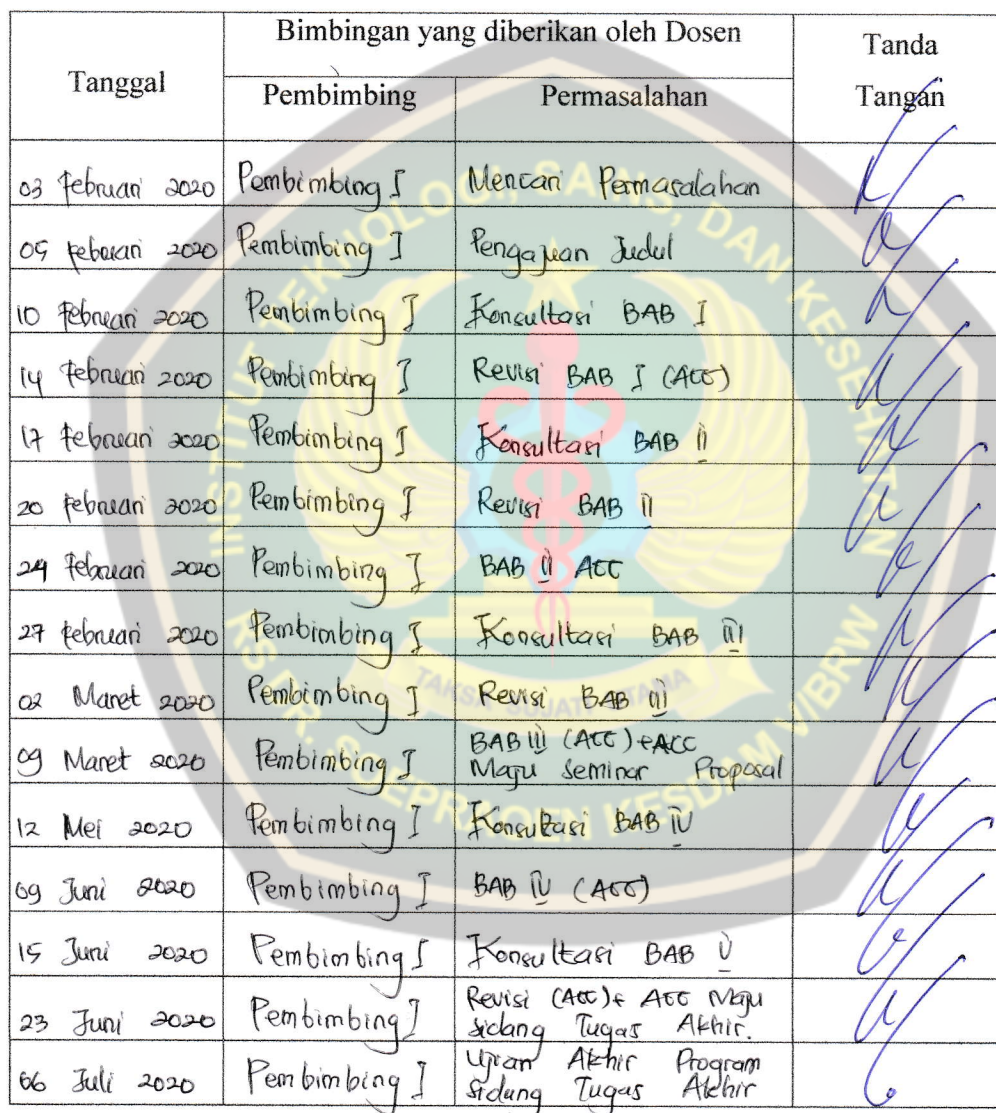 Tanggal
Bimbingan yang diberikan oleh Dosen
Tanda
Tangan
Pembimbing
Permasalahan
03 Februari 2020 Pembimbing I Mencari Permasalahan
05 Februari 2020 Pembimbing I Pengajuan Judul
10 Februari 2020 Pembimbing I Konsultasi BAB I
14 Februari 2020 Pembimbing I Revisi BAB I (ACC)
17 Februari 2020 Pembimbing I Konsultasi BAB II
20 Februari 2020 Pembimbing I Revisi BAB II
24 Februari 2020 Pembimbing I BAB II ACC
27 Februari 2020 Pembimbing I Konsultasi BAB III
02 Maret 2020 Pembimbing I Revisi BAB III
09 Maret 2020 Pembimbing I BAB III (ACC) + ACC
Maju Seminar Proposal
12 Mei 2020 Pembimbing I Konsultasi BAB IV
09 Juni 2020 Pembimbing I BAB IV (ACC)
15 Juni 2020 Pembimbing I Konsultasi BAB V
23 Juni 2020 Pembimbing I Revisi (ACC) + ACC Maju
Sidang Tugas Akhir.
06 Juli 2020 Pembimbing I Ujian Akhir Program
Sidang Tugas Akhir
INSTITUT TEKNOLOGI, SAINS, DAN KESEHATAN
RS DR. SOEPRAOEN KESDAM V/BRW
TAKSA SUJATI UTAMA